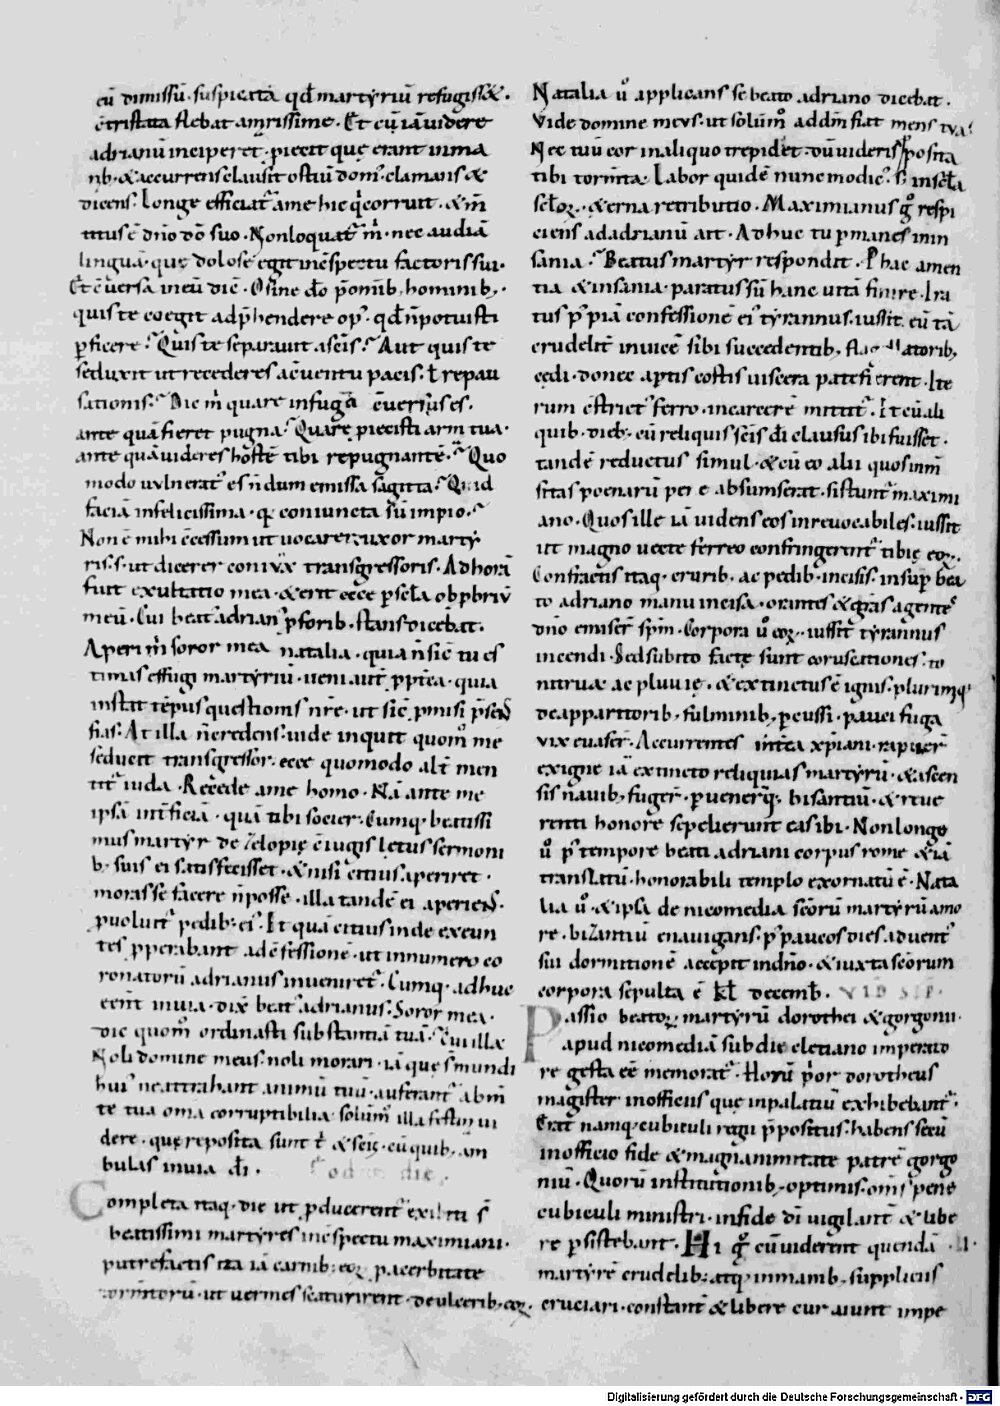 eū dimissū· suspicata qđ martyriū refugiss&·
ētristata flebat amarissime· Et cū iā videre
adrianū inciperet· piecit quę erant in ma
nib; & accurrens clausit ostiū dom'· clamans &
dicens· Longe efficiat' a me hic q̇ corruit· & m̄
titus ē dn̄o dō suo· Non loquat' m̄· nec audiā
linguā· quę dolose egit in ēspectu factoris sui·
Et ēversa in eū dic̄· O sine dō p̄ omnib; hominib;·
quis te coegit adp̄hendere op'· qđ n̄ potuisti
p̄ficere? Quis te separavit a sc̄is? Aut quis te
seduxit ut recederes a ēventu pacis· ł repau
sationis? Dic m̄ quare in fugā ēversus es·
ante quā fieret pugna? Quare piecisti arm̄ tua·
ante quā videres hostē tibi repugnantē? Quo
modo vulnerat' es n̄dum emissa sagitta? Quid
faciā infelicissima· q̨ coniuncta sū impio?
Non ē mihi ēcessum ut vocarer uxor marty
ris· s; ut dicerer coniūx transgressoris· Ad horā
fuit exultatio mea· & erit ecce p̄ sc̄la obp̄briū
meū· Cui beat' adrian' p̄ forib; stans dicebat·
Aperi m̄ soror mea natalia· quia n̄ sic̄ tu es
timas effugi martyriū· veni aut̄ p̄pt̄ea· quia
instat tēpus questionis nr̄e· ut sic̄ p̄misi p̄sen
tias· At illa n̄ credens· vide inquit quom̄ me
seducit transgressor· ecce quomodo alt̄ men
tit' iuda· Recede a me homo· Nā ante me
ipsā int̄ficiā· quā tibi socier· Cumq; beatissi
mus martyr de zelo pię ēiugis lętus sermoni
b; suis ei satisfecisset· & nisi citius aperiret·
moras se facere n̄ posse· illa tandē ei aperiens
p̄voluit' pedib; ei'· Et quā citius inde exeun
tes p̄perabant ad ēfessionē· ut in numero co
ronatorū adrianus inveniret'· Cumq; adhuc
ēent in via· dix̄ beat' adrianus· Soror mea·
dic quom̄ ordinasti substantiā tuā? Cui illa·
Noli domine meus· noli morari· iā quę s̄ mundi
hui' ne attrahant animū tuū· auferant' ab m̄
te tua om̄a corruptibilia· solum̄ illa festin vi
dere· quę reposita sunt t̄ & sc̄is· cū quib; am
bulas in via dī·
Completa itaq; die ut p̄ducerent' exibiti s̄
beatissimi martyres in ēspectu maximiani·
putrefactis ita iā carnib; eoꝝ p̄ acerbitate
tormtorū· ut vermes scaturirent de ulcerib; eoꝝ·
Natalia ů applicans se beato adriano dicebat·
Vide domine meus· ut solum̄ ad dm̄ fiat mens tua·
Nec tuū cor in aliquo trepidet· dū videris posita
tibi torm̄ta· Labor quidē nunc modic'· s; in sc̄la
sc̄loꝝ· & erna retributio· Maximianus g̊ respi
ciens ad adrianū ait· Adhuc tu p̄manes in in
sania? Beatus martyr respondit· P hac amen
tia & insania· paratus sū hanc vitā finire· Ira
tus p̄ piā confessionē ei' tyrannus· iussit eū tā
crudelit̄ invicē sibi succedentib; flagellatorib;
cędi· donec aptis costis viscera patefierent· Ite
rum ēstrict' ferro· in carcerē mittit'· Et cū ali
quib; dieb; cū reliquis sc̄is dī clausus ibi fuisset·
tandē reductus simul· & cū eo alii quos inm̄
sitas poenarū pene absumserat· sistunt' maximi
ano· Quos ille iā videns eos inrevocabiles· iussit
ut magno vecte ferreo confringerent' tibię eoꝝ·
Confractis itaq; crurib; ac pedib; incisis· insup̄ bea
to adriano manu incisa· orantes & gr̄as agentes
dn̄o emiser̄ sp̄m· Corpora ů eoꝝ iussit tyrannus
incendi· Sed subito factę sunt coruscationes· to
nitruaac pluvię· & extinctus ē ignis· plurimiq;
de apparitorib; fulminib; p̄cussi· pauci fuga
vix evaser̄· Accurrentes int̄ea xp̄iani· rapuer̄
ex igne iā extincto reliquias martyrū· & ascen
sis navib; fuger̄· p̄venerq; bisantiū· & reve
renti honore sepelierunt eas ibi· Non longo
ů p̄ tempore beati adriani corpus rome & iā
translatū· honorabili templo exornatū ē· Nata
lia ů & ipsa de nicomedia sc̄orū martyrū amo
re· bizantiū enavigans· p̄ paucos dies advent'
sui dormitionē accepit in dn̄o· & iuxta sc̄orum
corpora sepulta ē kl decemb̄·
Passio beatoꝝ martyrū dorothei & gorgonii·
apud nicomediā sub diecletiano imperato
re gesta ee memorat'· Horū p̄or dorotheus
magister in officiis que in palatiū exhibebant'·
Erat namq; cubiculi regii p̄positus· habens secū
in officio fide & magnanimitate patrē gorgo
niū· Quorū institutionib; optimis· om̄s pene
cubiculi ministri· in fide dī vigilant̄ & libe
re p̄sistebant· Hi g̊ cū viderent quendā
martyrē crudelib; atq; inmanib; suppliciis
cruciari· constant̄ & libere cur aiunt impe